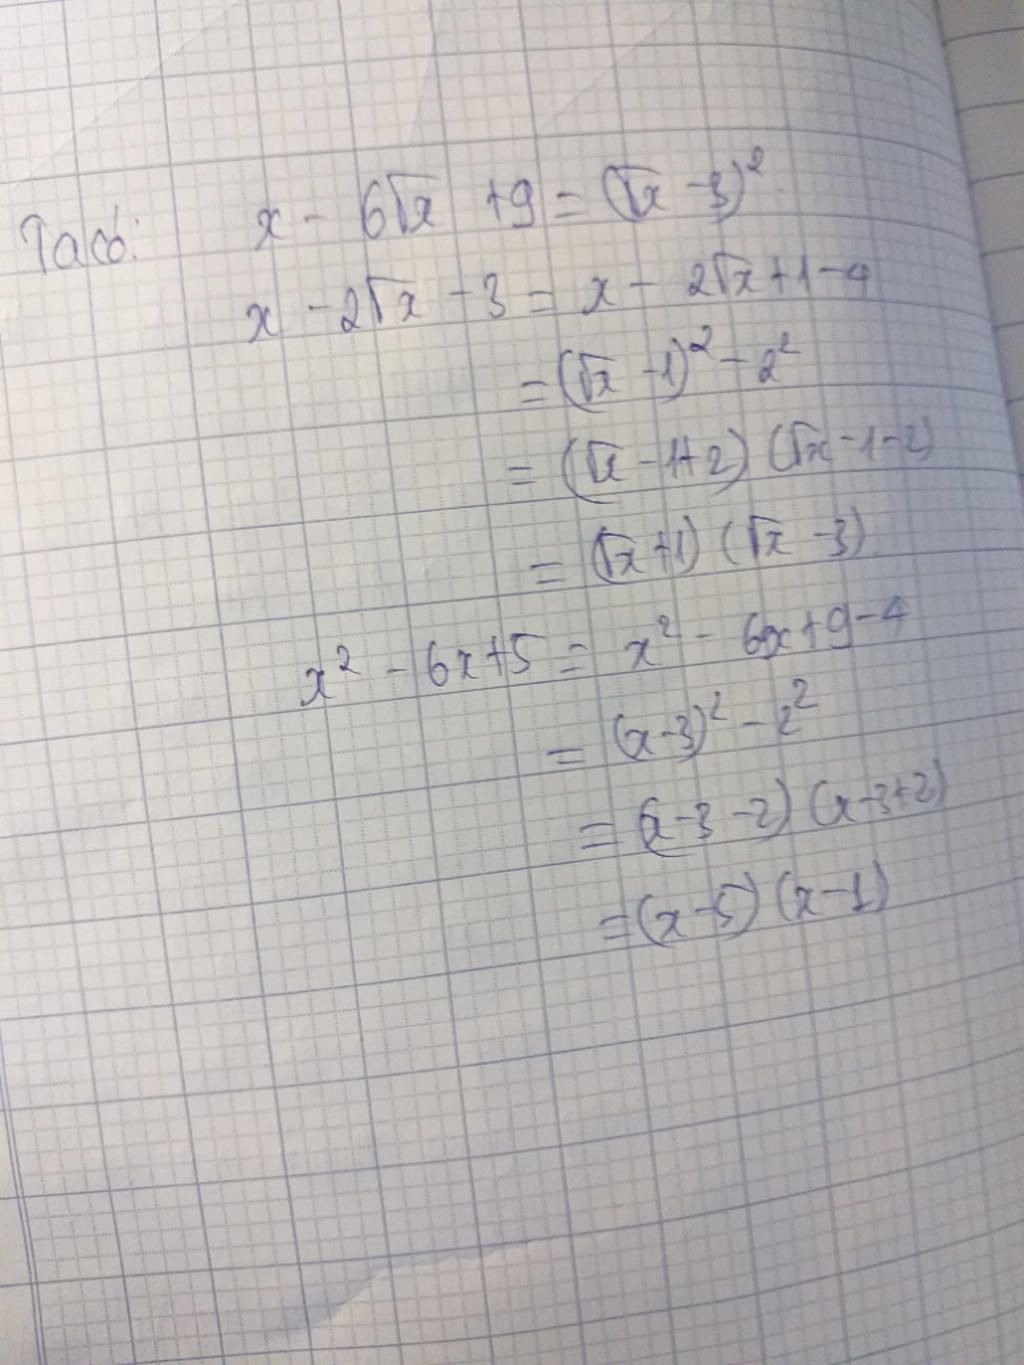 Ta có: x - 6√x + 9 = (√x - 3)²
x - 2√x - 3 = x - 2√x + 1 - 4
= (√x - 1)² - 2²
= (√x - 1 + 2) (√x - 1 - 2)
= (√x + 1) (√x - 3)
x² - 6x + 5 = x² - 6x + 9 - 4
= (x - 3)² - 2²
= (x - 3 - 2) (x - 3 + 2)
= (x - 5) (x - 1)